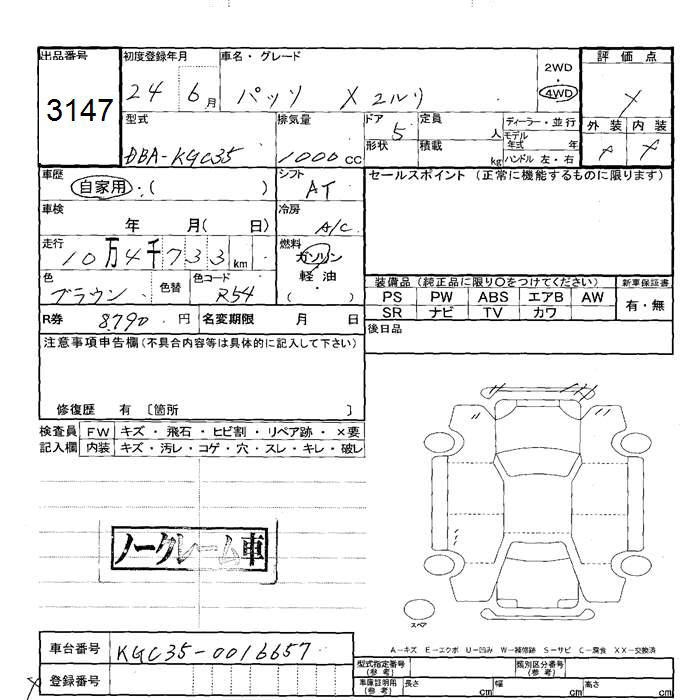 出品番号
3147
初度登録年月
24 6月
車名・グレード
パッソ X ユルリ
2WD
・
4WD
評価点
X
外装 内装
X X
型式
DBA-KGC35
排気量
1000cc
ドア 5
形状
定員 人
積載 kg
ディーラー・並行
モデル年式 年
ハンドル 左・右
車歴
自家用・( )
シフト
AT
セールスポイント (正常に機能するものに限ります)
車検
年 月( 日)
冷房
A/C
走行
10万4千733km
燃料
ガソリン
・
軽油
( )
色
ブラウン
色替
色コード
R54
装備品 (純正品に限り○をつけてください)
PS PW ABS エアB AW
SR ナビ TV カワ
新車保証書
有・無
R券 8,790円
名変期限 月 日
後日品
注意事項申告欄(不具合内容等は具体的に記入して下さい)
修復歴 有 〔箇所 〕
検査員記入欄
FW キズ・飛石・ヒビ割・リペア跡・×要
内装 キズ・汚レ・コゲ・穴・スレ・キレ・破レ
ノークレーム車
スペア
A－キズ E－エクボ U－凹み W－補修跡 S－サビ C－腐食 XX－交換済
車台番号 KGC35-0016657
登録番号
型式指定番号(参考)
類別区分番号(参考)
車庫証明用(参考) 長さ cm 幅 cm 高さ cm